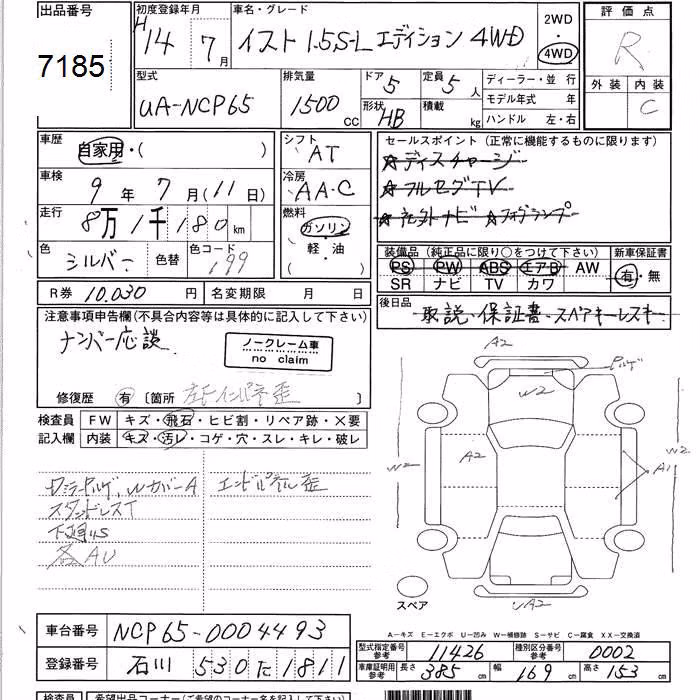 出品番号
7185
初度登録年月
H 14年 7月
車名・グレード
イスト 1.5S-Lエディション 4WD
2WD
4WD
評価点
R
外装 内装
C
型式
UA-NCP65
排気量
1500 CC
ドア 5
形状 HB
定員 5人
積載 kg
ディーラー・並 行
モデル年式 年
ハンドル 左・右
車歴
自家用・( )
車検
9年 7月(11日)
走行
8万1千180km
色
シルバー 色替
色コード
199
シフト
AT
冷房
AA・C
燃料
ガソリン
(軽・油)
セールスポイント (正常に機能するものに限ります)
☆ディスチャージ
☆フルセグTV
☆社外ナビ ☆フォグランプ
装備品 (純正品に限り○をつけて下さい)
PS PW ABS エアB AW
SR ナビ TV カワ
新車保証書
有・無
R券 10,030円
名変期限 月 日
後日品
取説・保証書・スペアキーレスキー
注意事項申告欄(不具合内容等は具体的に記入して下さい)
ナンバー応談
ノークレーム車
no claim
修復歴 有 〔箇所 左Fインパネ歪
検査員
記入欄
FW キズ・飛石・ヒビ割・リペア跡・×要
内装 キズ・汚レ・コゲ・穴・スレ・キレ・破レ
エンドパネル歪
スタンドレスT
下廻りS
各AU
A2
W2
A2
W2
W2
A1
UA2
スペア
A-キズ E-エクボ U-凹み W-補修跡 S-サビ C-腐食 XX-交換済
車台番号
NCP65-0004493
登録番号
石川 530 た 1811
型式指定番号
参考
11426
種別区分番号
参考
0002
車庫証明用
参考
長さ 385 cm
幅 169 cm
高さ 153 cm
検査員
希望出品コーナー(ご希望のコーナー名を記入して下さい)